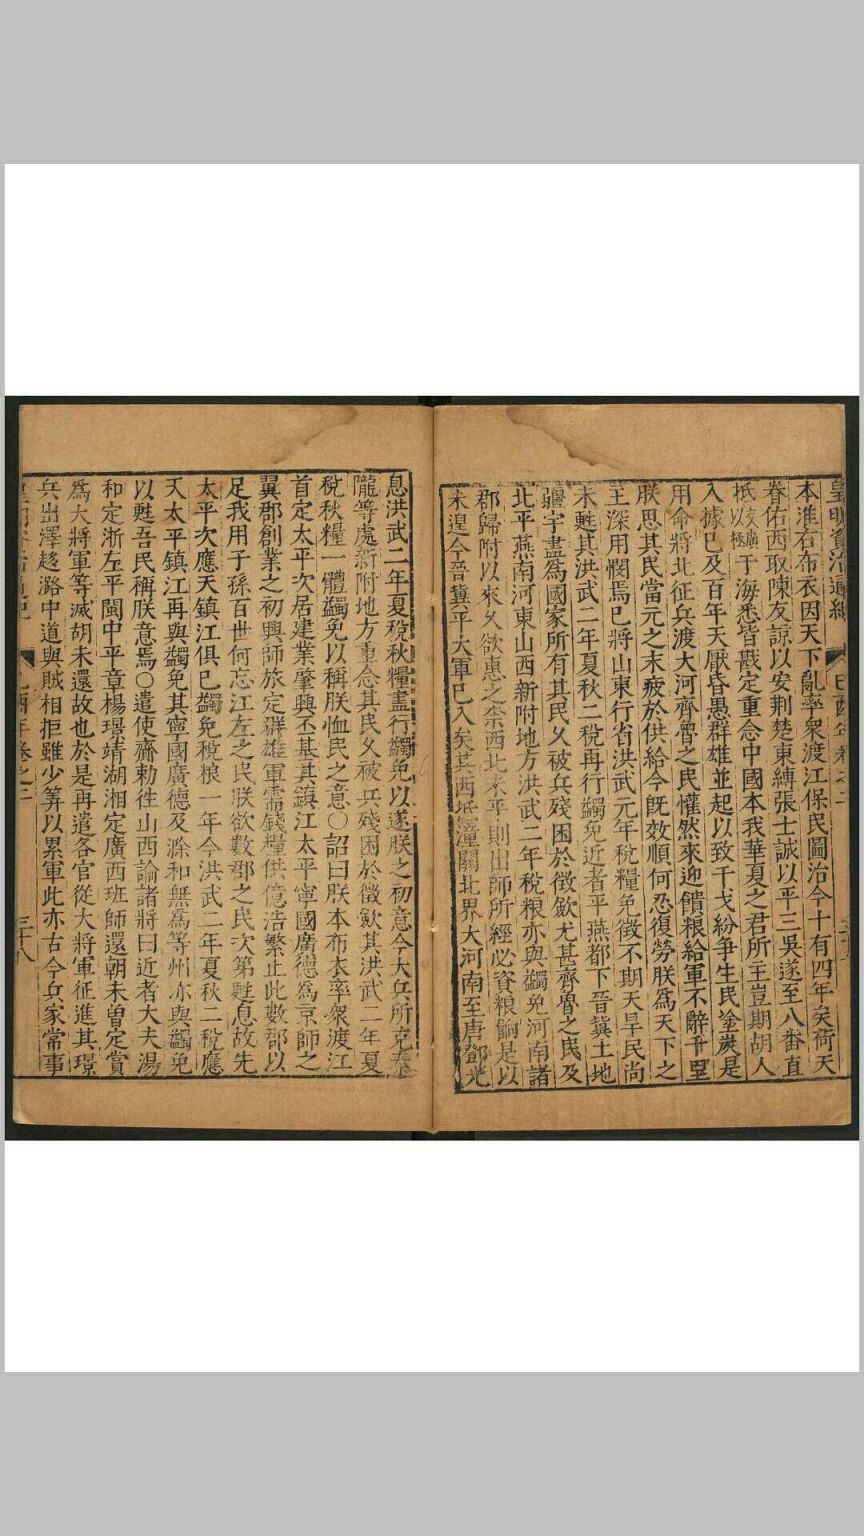 皇明資治通紀
己酉年卷之二
本淮右布衣因天下亂率衆渡江保民圖治今十有四年矣荷天
眷佑西取陳友諒以安荆楚東縛張士誠以平三吳遂至八番直
抵交廣以極于海悉皆戡定重念中國本我華夏之君所主豈期胡人
入據已及百年天厭昏愚群雄並起以致干戈紛爭生民塗炭是
用命將北征兵渡大河齊魯之民懽然來迎饋粮給軍不辭千里
朕思其民當元之末疲於供給今既效順何忍復勞朕爲天下之
王深用憫焉已將山東行省洪武元年稅糧免徵不期天旱民尚
未甦其洪武二年夏秋二稅再行蠲免近者平燕都下晉冀土地
疆宇盡爲國家所有其民久被兵殘困於徴歛尤甚齊魯之民及
北平燕南河東山西新附地方洪武二年稅粮亦與蠲免河南諸
郡歸附以來久欲惠之柰西北未平則出師所經必資粮餉是以
未遑今晉冀平大軍已入矣其西抵潼關北界大河南至唐鄧光
息洪武二年夏稅秋糧盡行蠲免以遂朕之初意今大兵所克秦
隴等處新附地方重念其民久被兵殘困於徵歛其洪武二年夏
稅秋糧一體蠲免以稱朕恤民之意○詔曰朕本布衣率衆渡江
首定太平次居建業肇興丕基其鎮江太平寧國廣德爲京師之
翼郡創業之初興師旅定群雄軍需錢糧供億浩繁止此數郡以
足我用子孫百世何忘江左之民朕欲數郡之民次第甦息故先
太平次應天鎮江俱已蠲免稅粮一年今洪武二年夏秋二稅應
天太平鎮江再與蠲免其寧國廣德及滁和無爲等州亦與蠲免
以甦吾民稱朕意焉○遣使齎勅徃山西諭諸將曰近者大夫湯
和定浙左平閩中平章楊璟靖湖湘定廣西班師還朝未曾定賞
爲大將軍等滅胡未還故也於是再遣各官從大將軍征進其璟
兵出澤趍潞中道與賊相拒雖少筭以累軍此亦古今兵家常事
皇明資治通紀
己酉年卷之二
三十八